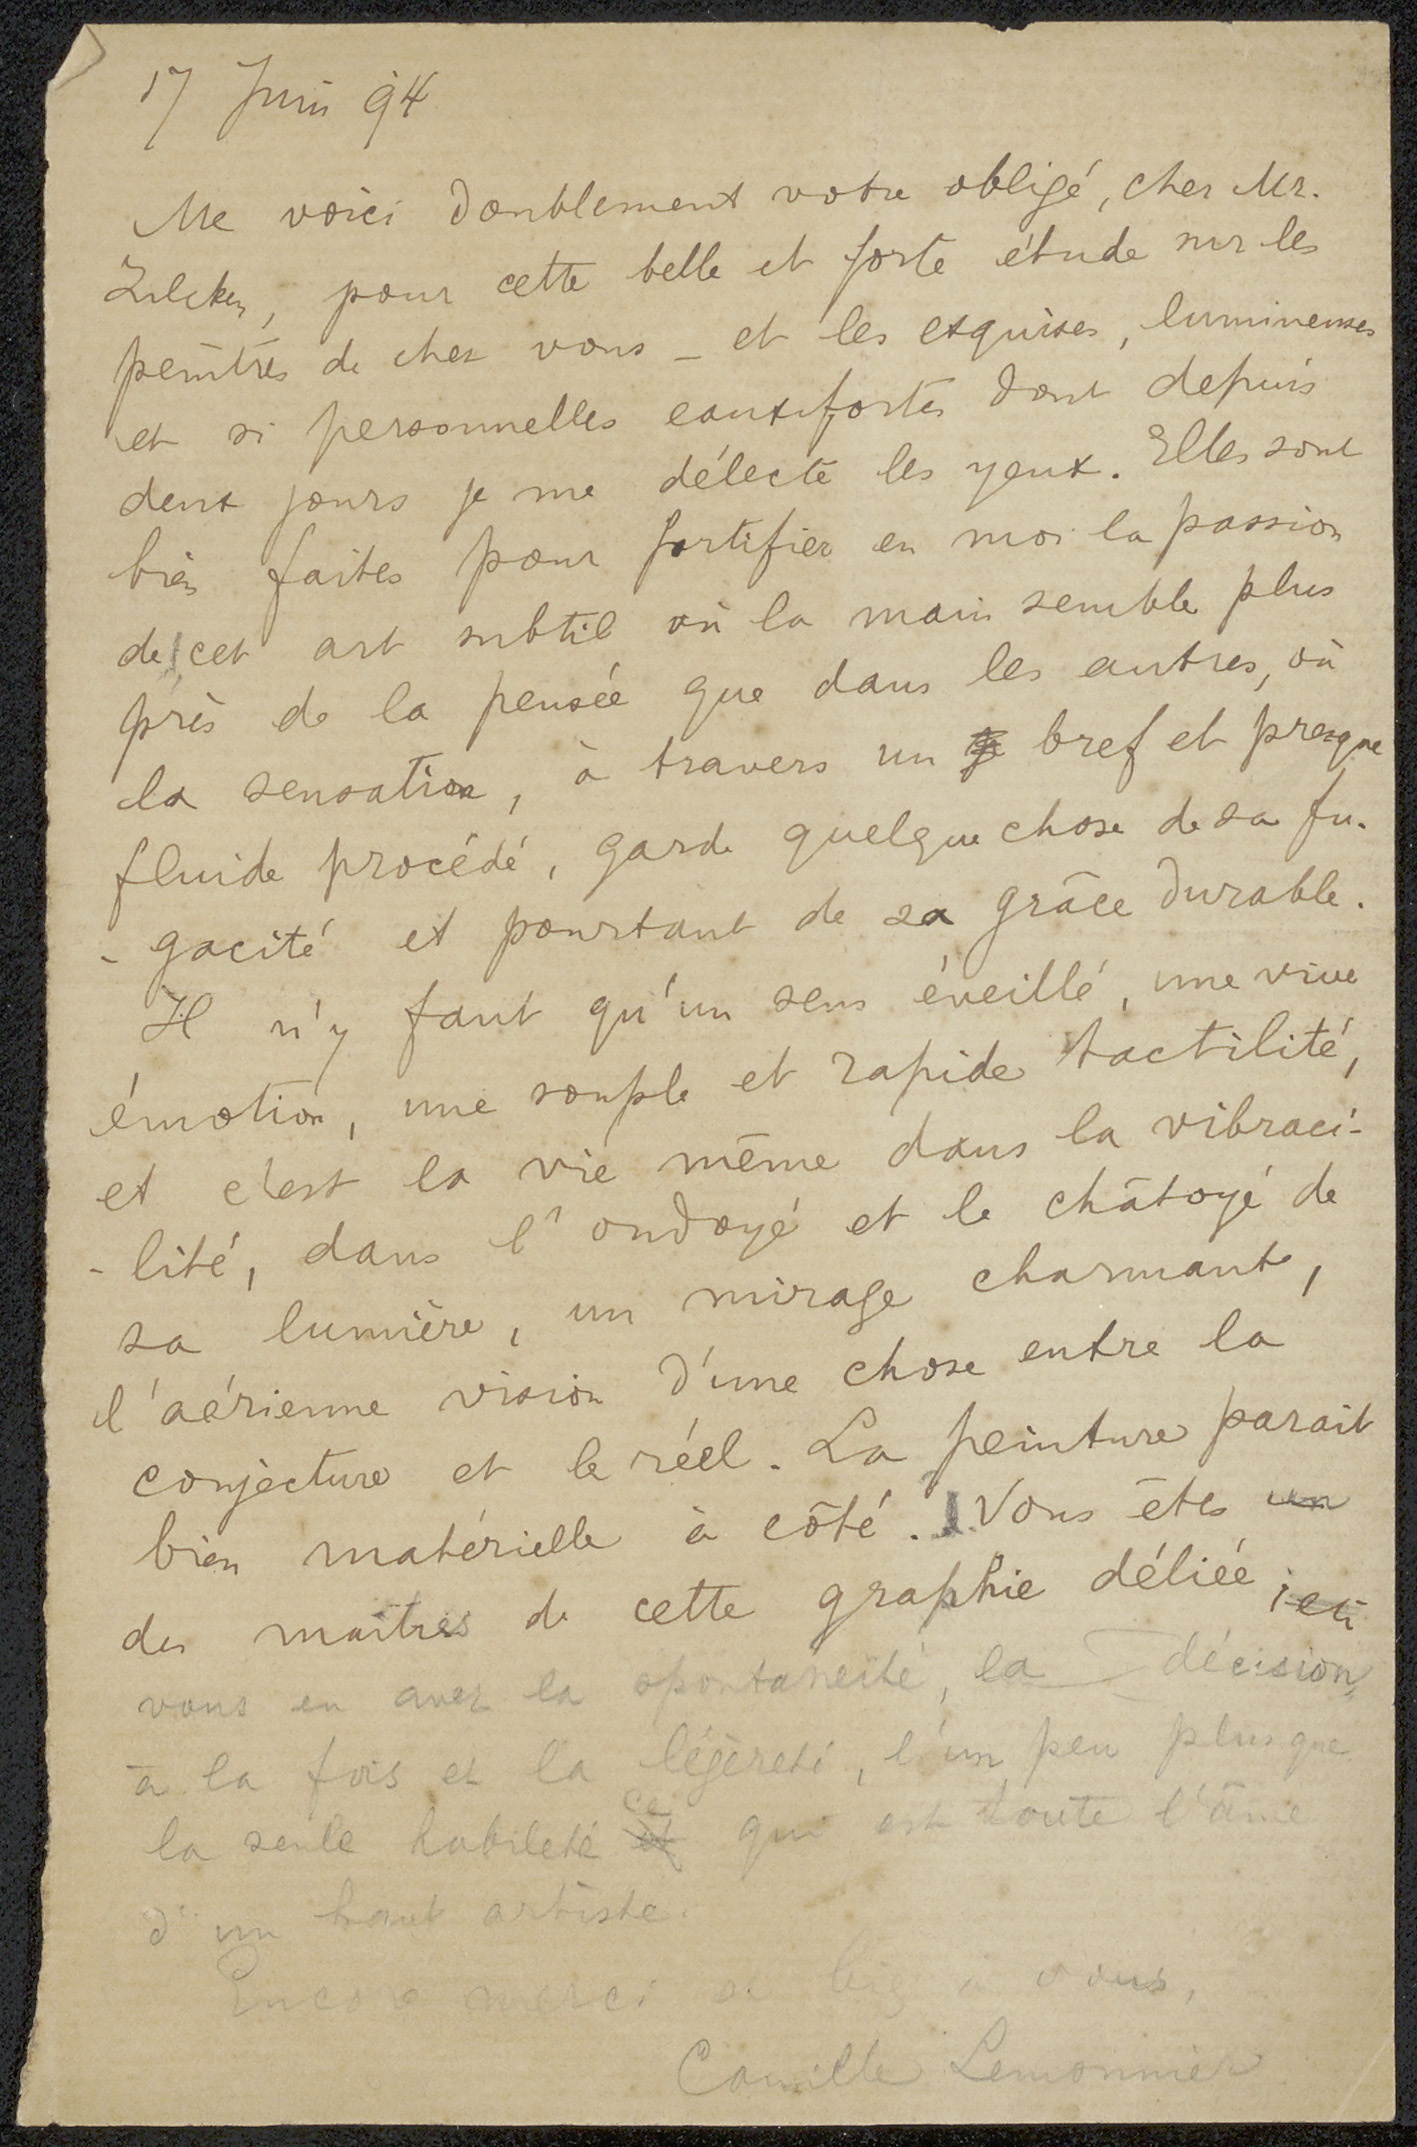 17 Juin 94
Me voici doublement votre obligé, cher Mr.
Zilcken, pour cette belle et forte étude sur les
peintres de chez vous - et les exquises, lumineuses
et si personnelles eauxfortes dont depuis
deux jours je me délecte les yeux. Elles sont
bien faites pour fortifier en moi la passion
de cet art subtil où la main semble plus
près de la pensée que dans les autres, où
la sensation, à travers un bref et presque
fluide procédé, garde quelque chose de sa fu-
-gacité et pourtant de sa grâce durable.
Il n'y faut qu'un sens éveillé, une vive
émotion, une souple et rapide tactilité,
et c'est la vie même dans la vibraci-
-lité, dans l'ondoyé et le châtoyé de
sa lumière, un mirage charmant,
l'aérienne vision d'une chose entre la
conjecture et le réel. La peinture parait
bien matérielle à côté. Vous êtes un
des maitres de cette graphie déliée; et
vous en avez la spontanéité, la décision,
à la fois et la légèreté, l'un peu plus que
la seule habileté et ce qui est toute l'âme
d'un haut artiste.
Encore merci et bien à vous,
Camille Lemonnier